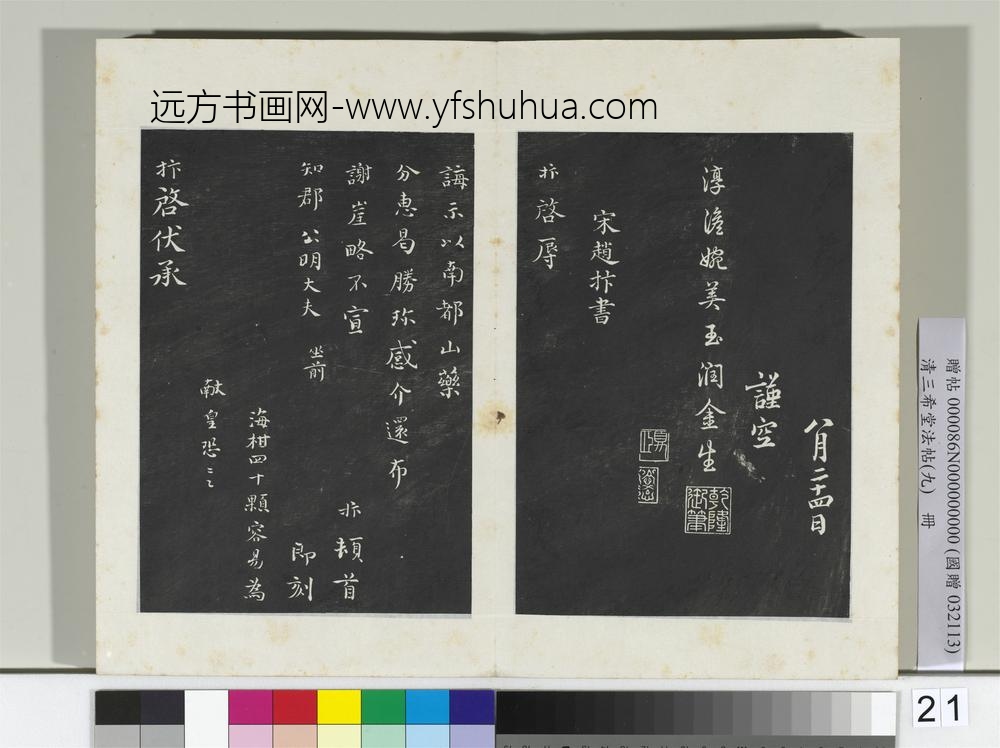 远方书画网-www.yfshuhua.com
八月二十四日
謹空
淳澹婉美玉潤金生
乾隆御筆
宋趙抃書
抃啓辱
誨示以南都山藥
分惠曷勝珎感介還布
謝崖略不宣 抃頓首
知郡公明大夫 坐前 即刻
海柑四十顆容易為
献皇恐
抃啓伏承
贈帖 000086N000000000 (國贈 032113)
清三希堂法帖(九) 冊
21